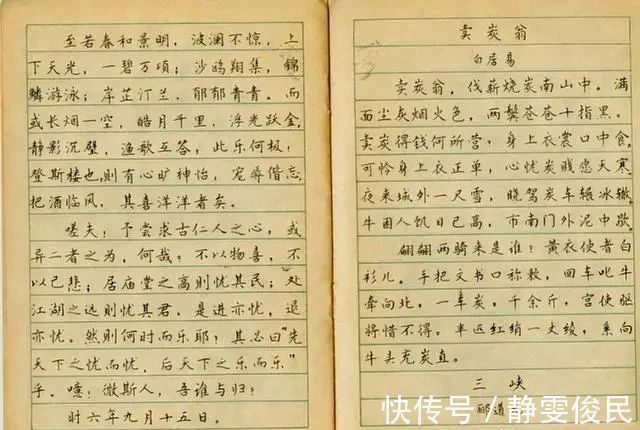 至若春和景明，波澜不惊，上
下天光，一碧万顷；沙鸥翔集，锦
鳞游泳；岸芷汀兰，郁郁青青。而
或长烟一空，皓月千里，浮光跃金，
静影沉璧，渔歌互答，此乐何极！
登斯楼也，则有心旷神怡，宠辱偕忘，
把酒临风，其喜洋洋者矣。
嗟夫！予尝求古仁人之心，或
异二者之为，何哉？不以物喜，不
以己悲；居庙堂之高则忧其民；处
江湖之远则忧其君，是进亦忧，退
亦忧。然则何时而乐耶？其必曰“先
天下之忧而忧，后天下之乐而乐”
乎。噫！微斯人，吾谁与归？
时六年九月十五日。
卖炭翁
白居易
卖炭翁，伐薪烧炭南山中。满
面尘灰烟火色，两鬓苍苍十指黑。
卖炭得钱何所营，身上衣裳口中食。
可怜身上衣正单，心忧炭贱愿天寒
夜来城外一尺雪，晓驾炭车辗冰辙。
牛困人饥日已高，市南门外泥中歇。
翩翩两骑来是谁？黄衣使者白
衫儿。手把文书口称敕，回车叱牛
牵向北。一车炭，千余斤，宫使驱
将惜不得。半匹红绡一丈绫，系向
牛头充炭直。
三峡
郦道
快传号／静雯俊民